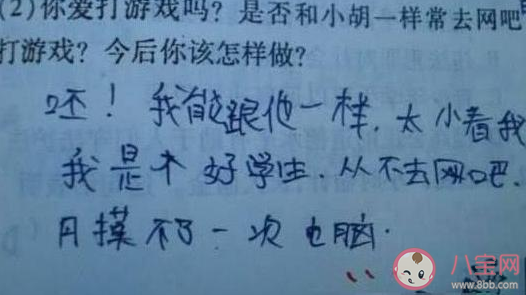 (2)你爱打游戏吗?是否和小胡一样常去网吧
打游戏?今后你该怎样做?
呸!我能跟他一样.太小看我
我是个好学生.从不去网吧.
月摸不了一次电脑.
八宝网
www.8bb.com